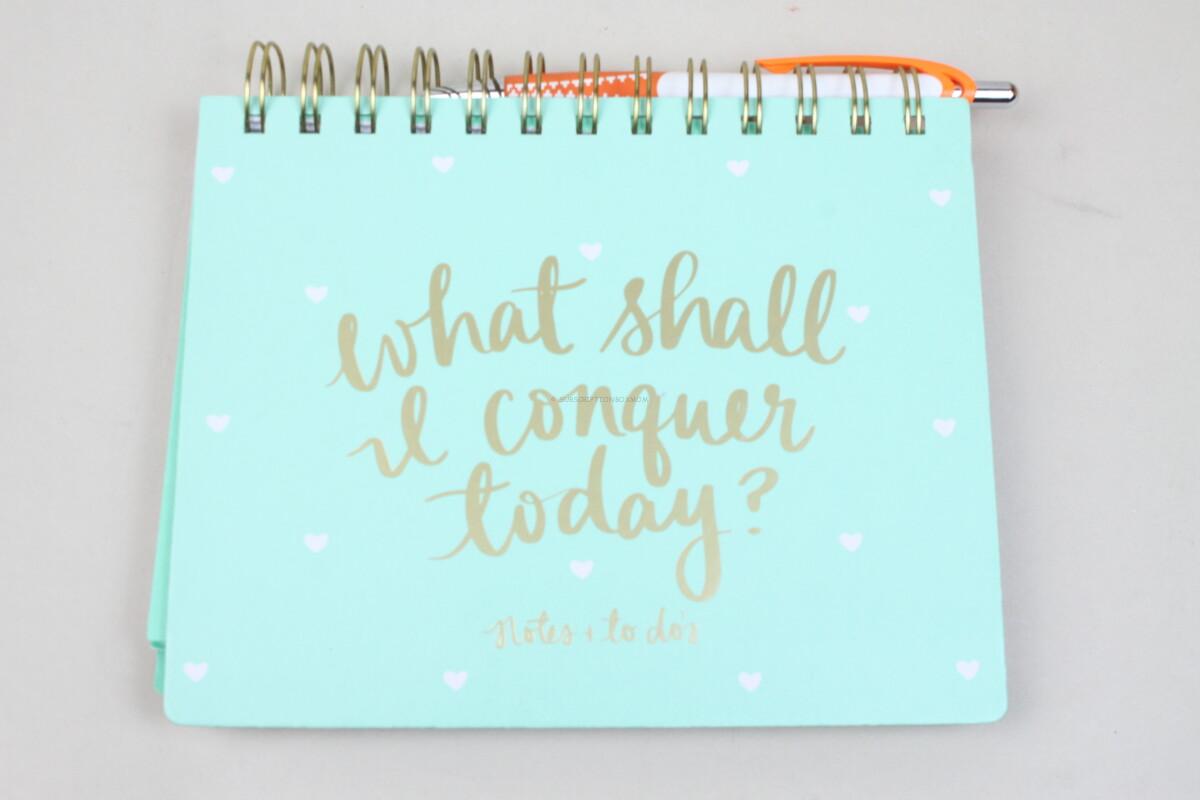 what shall
I conquer
© SUBSCRIPTIONBOXMOM
today?
Notes + to do's